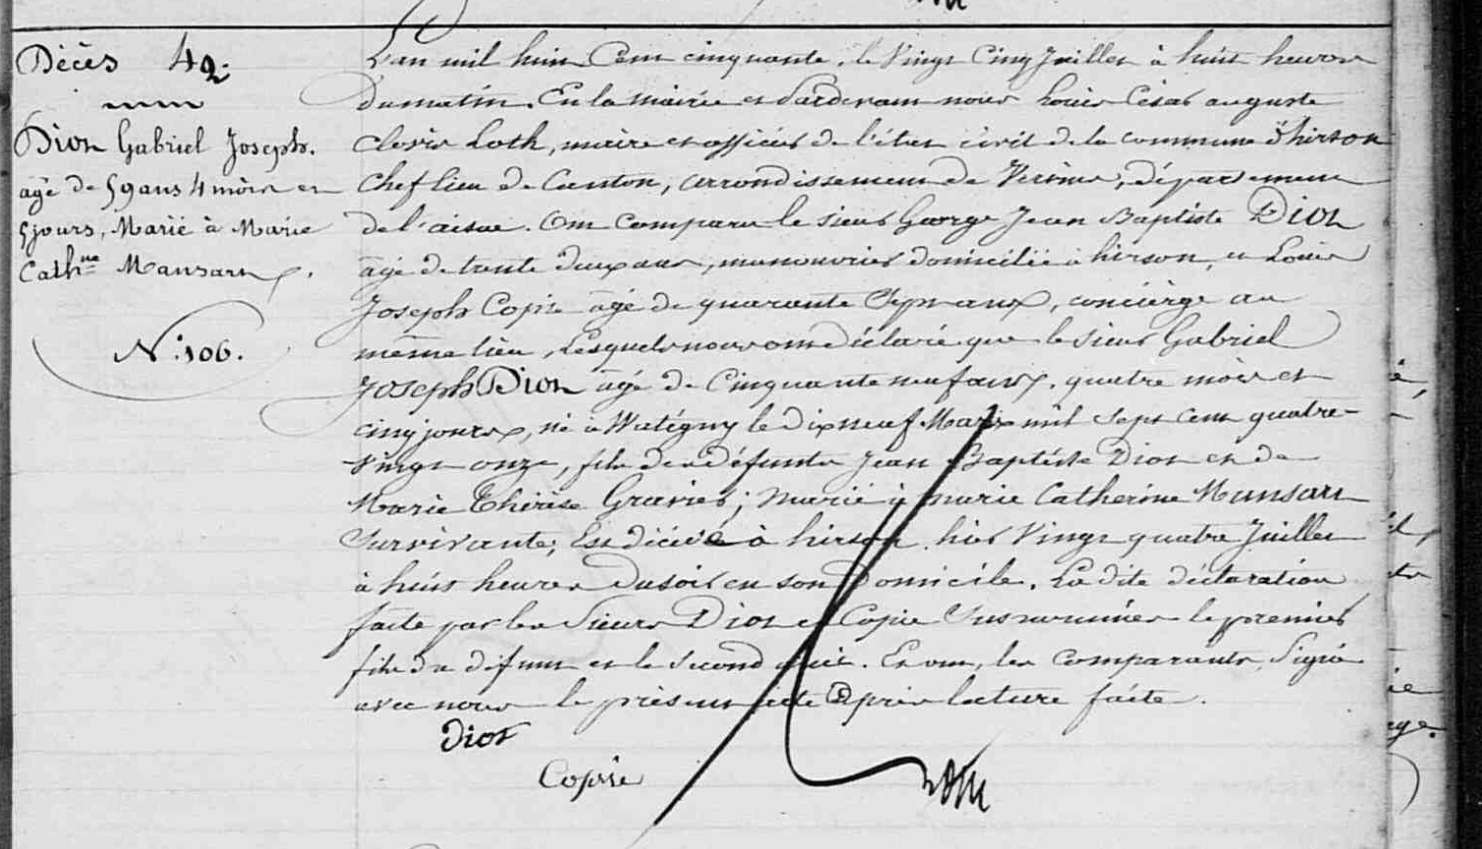 Décès 42.
Dion Gabriel Joseph.
agé de 59 ans 4 mois et
5 jours, Marié à Marie
Cath.ne Mansart.
N.º 106.
L'an mil huit Cent cinquante, le Vingt Cinq Juillet à huit heures
du matin. En la Mairie et Pardevant nous Louis César auguste
Clovis Loth, maire et officier de l'état civil de la commune d'hirson
Chef lieu de Canton, arrondissement de Vervins, département
de l'aisne. Ont comparu le sieur George Jean Baptiste Dion
âgé de trente deux ans, manouvrier domicilié à hirson, et Louis
Joseph Copie âgé de quarante Sept ans, concièrge au
même lieu, Lesquels nous ont déclaré que le sieur Gabriel
Joseph Dion âgé de Cinquante neuf ans, quatre mois et
cinq jours, né à Watigny le dix neuf Mars mil sept cent quatre-
vingt onze, fils de défunts Jean Baptiste Dion et de
Marie Thérèse Gravier; marié à marie Catherine Mansart
Survivante; Est décédé à hirson, hier Vingt quatre Juillet
à huit heures du soir en son Domicile. La dite déclaration
faite par les Sieurs Dion et Copie Susnommés le premier
fils du défunt et le Second ami. Et ont, les Comparants, Signé
avec nous le présent acte après lecture faite.
Dion
Copie
Loth